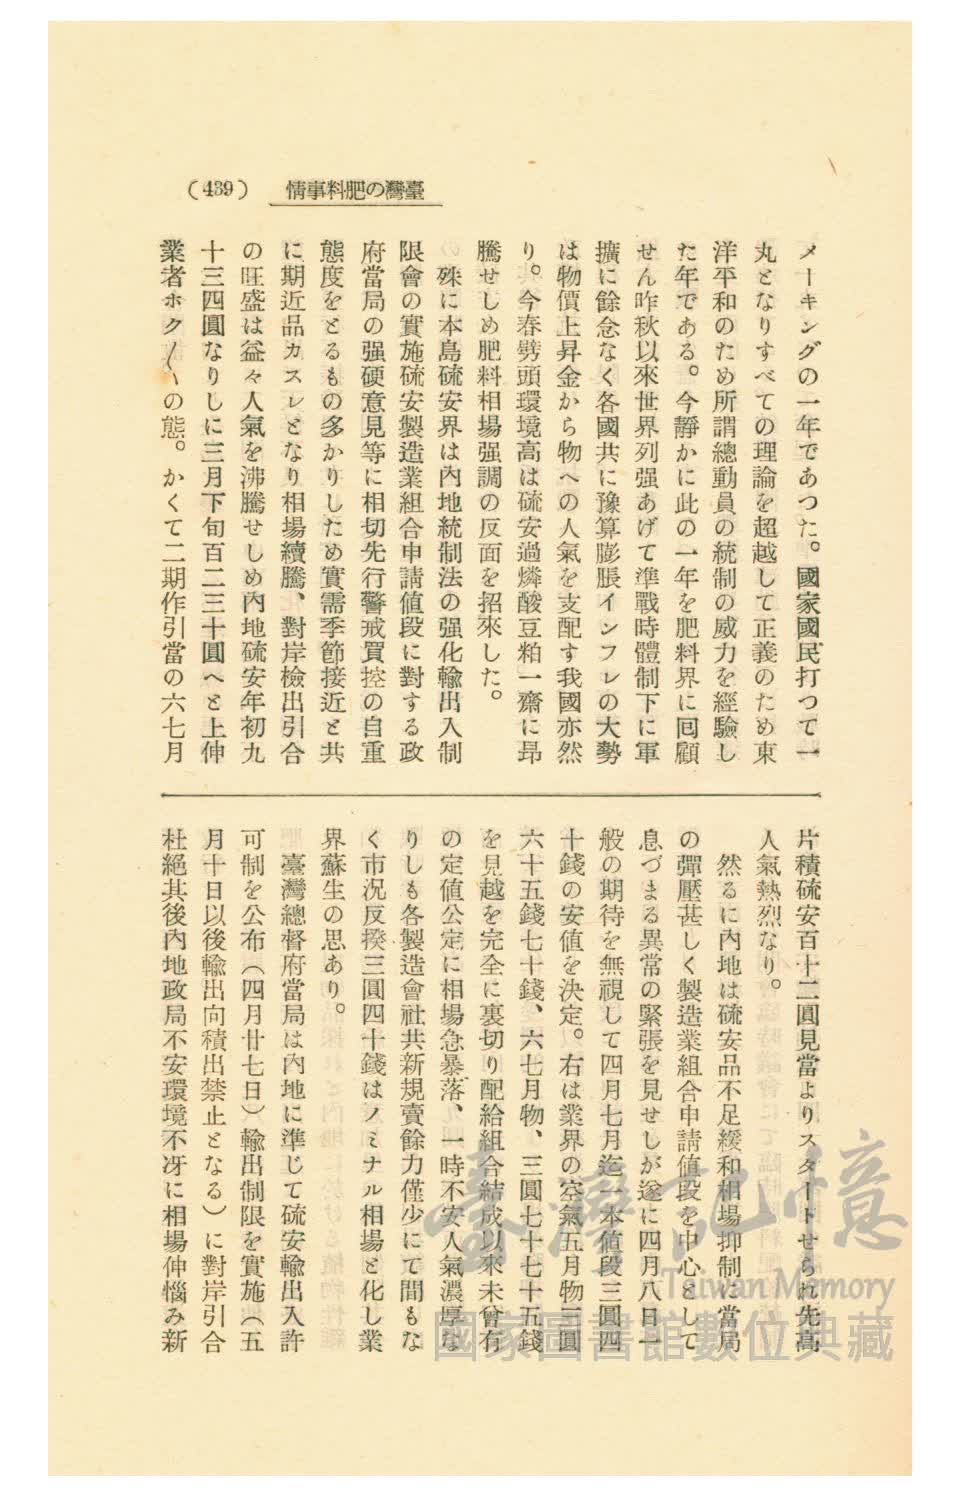 臺灣の肥料事情
(439)
メーキングの一年であつた。國家國民打つて一
丸となりすべての理論を超越して正義のため東
洋平和のため所謂總動員の統制の威力を經驗し
た年である。今靜かに此の一年を肥料界に回顧
せん昨秋以來世界列强あげて準戰時體制下に軍
擴に餘念なく各國共に豫算膨脹インフレの大勢
は物價上昇金から物への人氣を支配す我國亦然
り。今春劈頭環境高は硫安過燐酸豆粕一齋に昂
騰せしめ肥料相場强調の反面を招來した。
殊に本島硫安界は內地統制法の强化輸出入制
限會の實施硫安製造業組合申請値段に對する政
府當局の强硬意見等に相切先行警戒買控の自重
態度をとるもの多かりしため實需季節接近と共
に期近品カスレとなり相場續騰、對岸檢出引合
の旺盛は益々人氣を沸騰せしめ內地硫安年初九
十三四圓なりしに三月下旬百二三十圓へと上伸
業者ホク〱の態。かくて二期作引當の六七月
片積硫安百十二圓見當よりスタートせられ先高
人氣熱烈なり。
然るに內地は硫安品不足緩和相場抑制に當局
の彈壓甚しく製造業組合申請値段を中心として
息づまる異常の緊張を見せしが遂に四月八日一
般の期待を無視して四月七月迄一本値段三圓四
十錢の安値を決定。右は業界の空氣五月物三圓
六十五錢七十錢、六七月物、三圓七十七十五錢
を見越を完全に裏切り配給組合結成以來未曾有
の定値公定に相場急暴落、一時不安人氣濃厚な
りしも各製造會社共新規賣餘力僅少にて間もな
く市況反撥三圓四十錢はノミナル相場と化し業
界蘇生の思あり。
臺灣總督府當局は內地に準じて硫安輸出入許
可制を公布(四月廿七日)輸出制限を實施(五
月十日以後輸出向積出禁止となる)に對岸引合
杜絕其後內地政局不安環境不冴に相場伸惱み新
臺灣記憶
Taiwan Memory
國家圖書館數位典藏